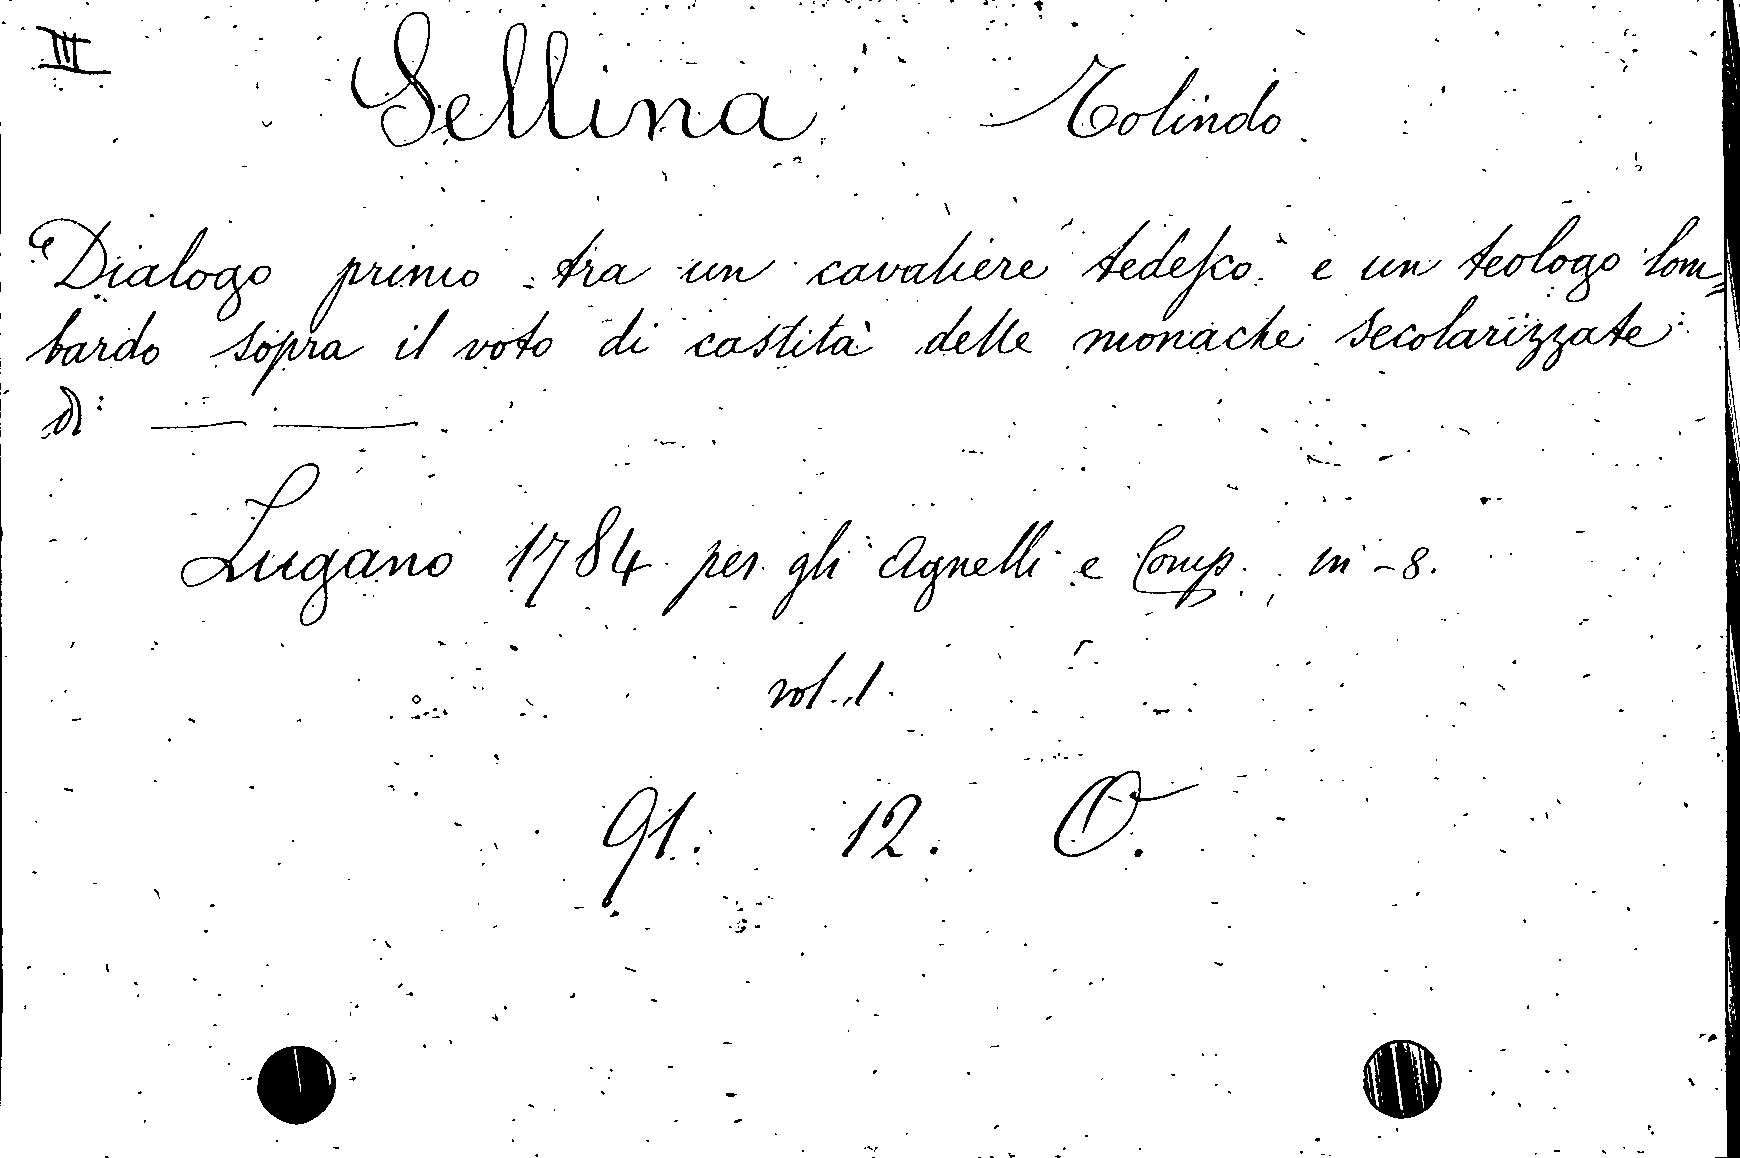 III
Sellina Tolindo
"Dialogo primo tra un cavaliere tedesco e un teologo lom=
bardo sopra il voto di castità delle monache secolarizzate:
di: — —
Lugano 1784 per gli Agnelli e Comp. in-8.
vol. 1.
91. 12. O.